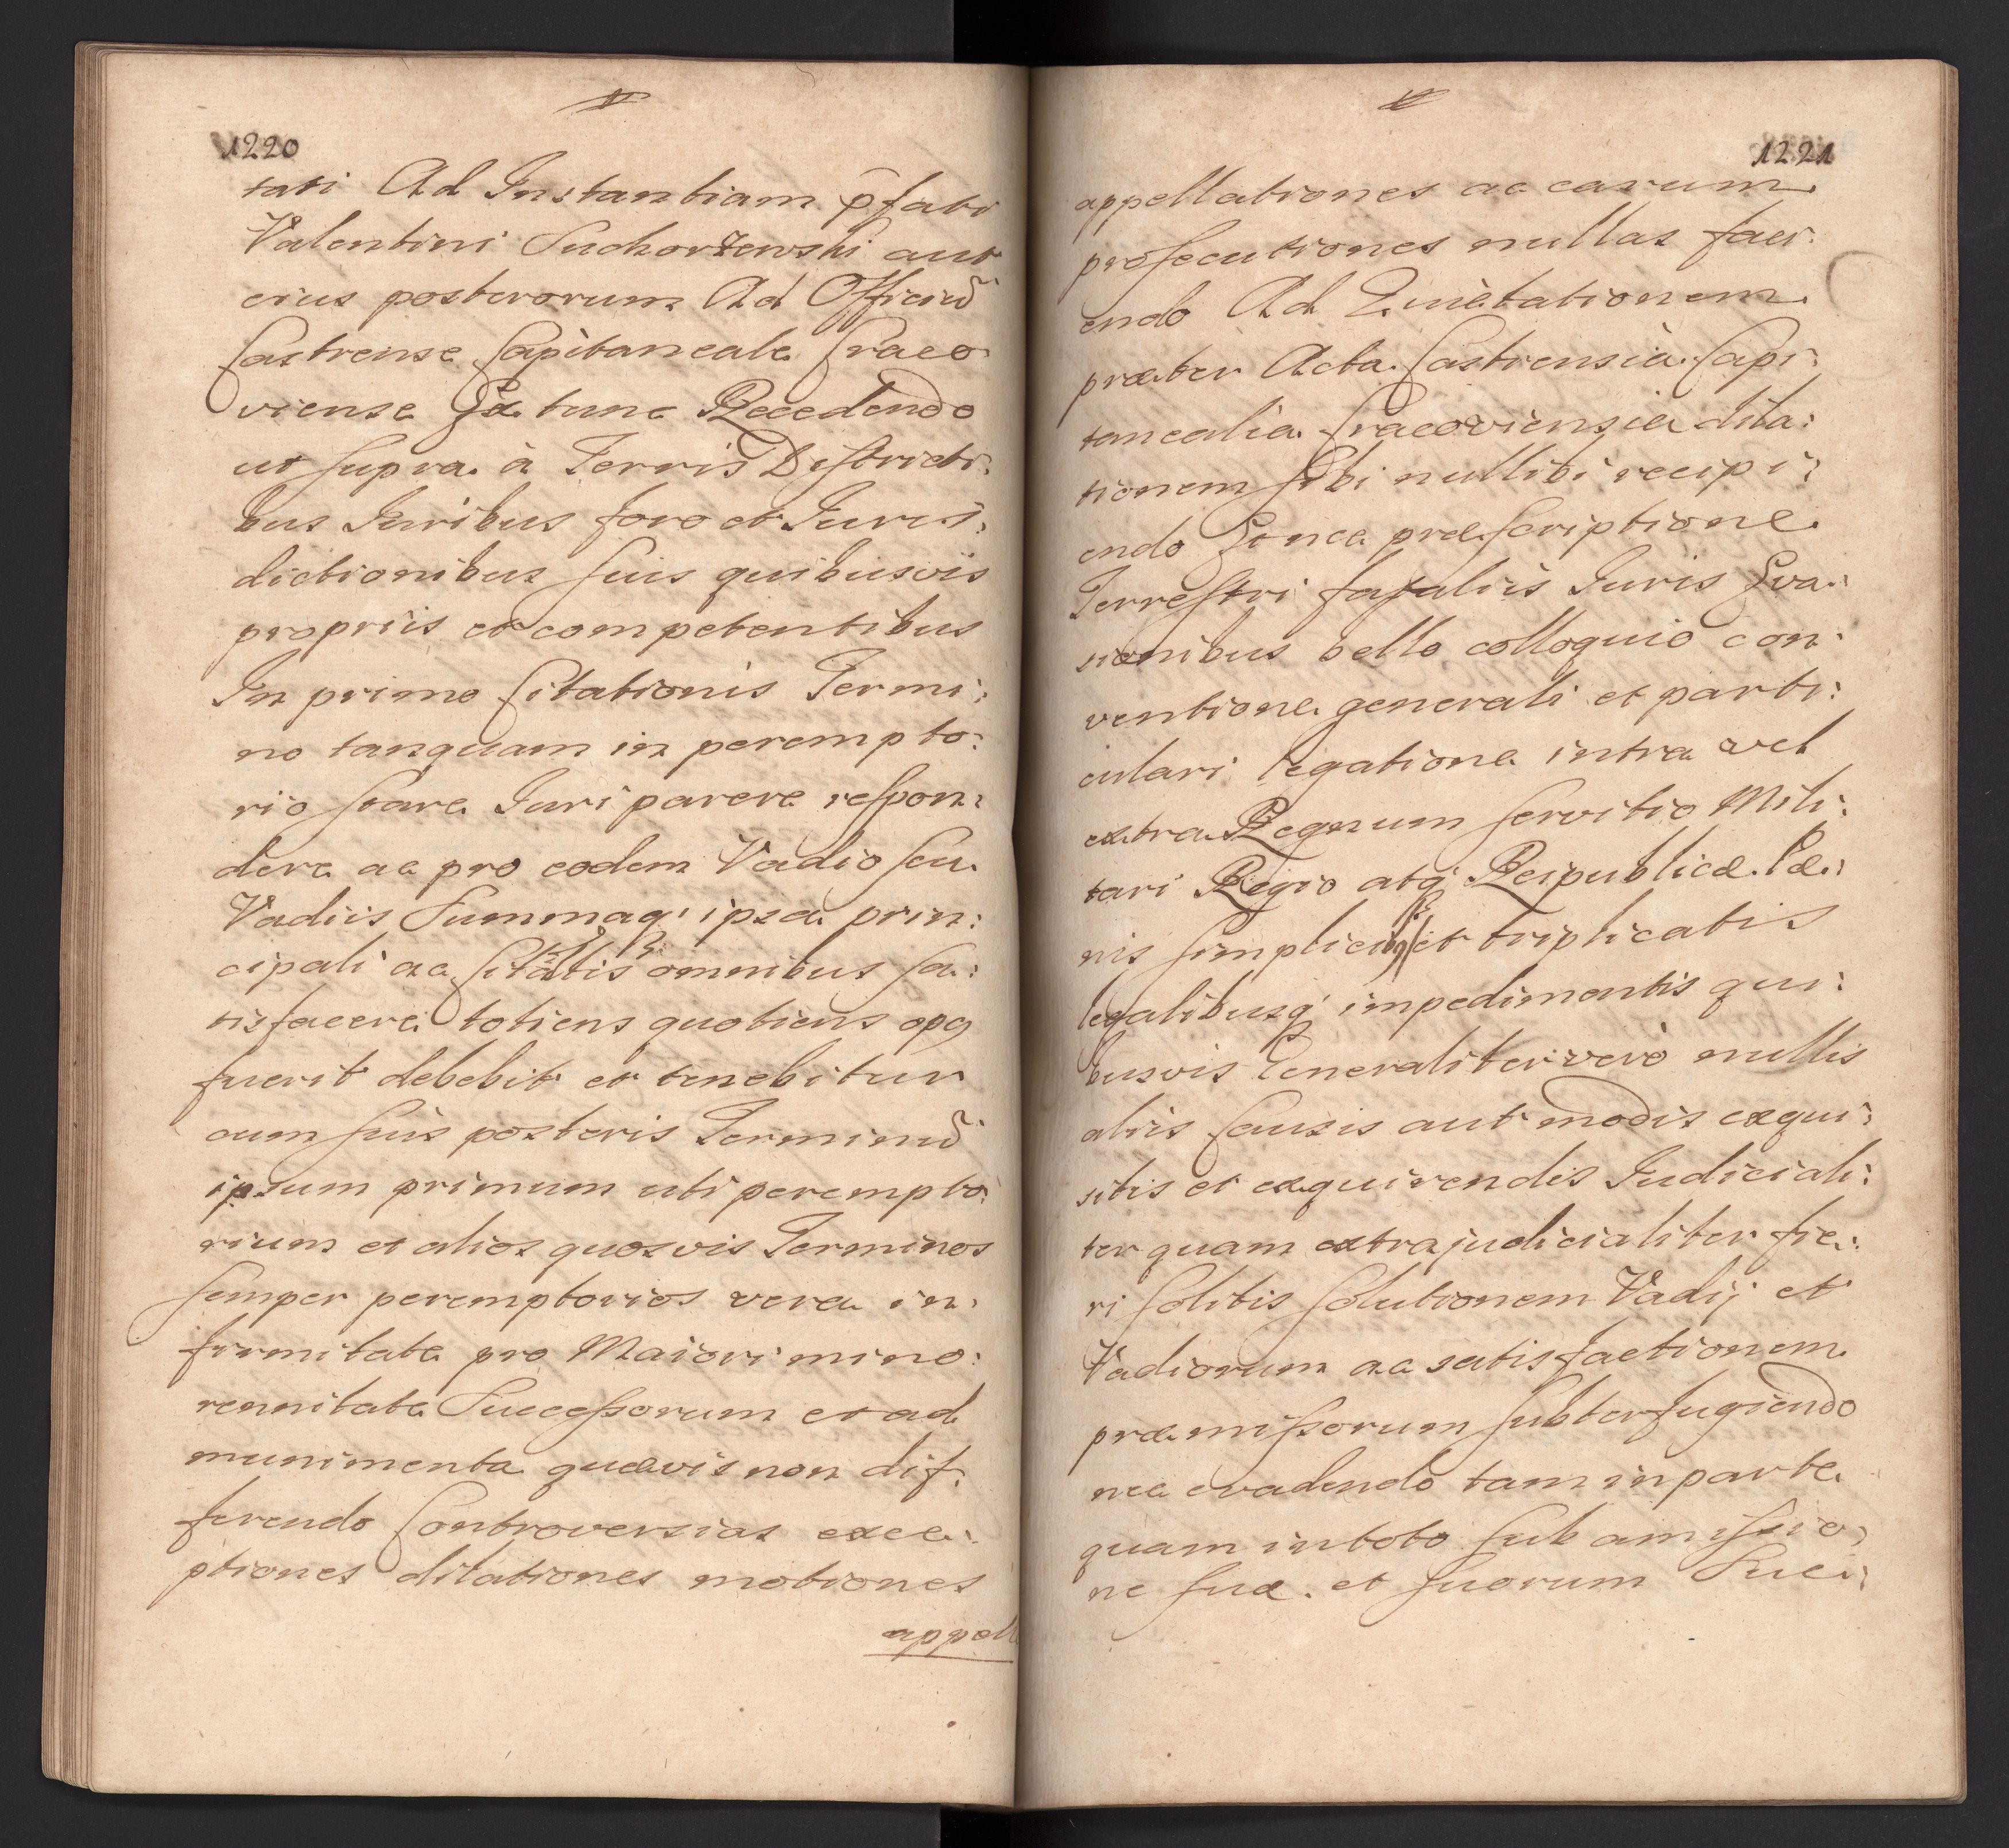 1220
tati Ad Instantiam p̄fati
Valentini Suchorzewski aut
eius posterorum Ad Officiū
Castrense Capitaneale Craco
viense Ex tunc Recedendo
ut supra à Terris Districti:
bus Iuribus foro et Iuris:
dictionibus suis quibusvis
propriis et competentibus
In primo Citationis Termi:
no tanquam in perempto:
rio stare Iuri parere respon:
dere ac pro eodem Vadio seu
Vadiis Summaq; ipsa prin:
cipali ac Citatis omnibus sa:
tisfacere totiens quotiens opq
fuerit debebit et tenebitur
cum suis posteris Terminū
ipsum primum uti perempto:
rium et alios quosvis Terminos
semper peremptorios vera in:
firmitate pro Maiori mino:
rennitate Successorum et ad
munimenta quævis non dif:
ferendo Controversias exce:
ptiones dilationes motiones
appell
1221
appellationes ac earum
prosecutiones nullas faci:
endo Ad Quietationem
præter Acta Castrensia Capi:
tanealia Cracoviensia dila:
tionem sibi nullibi recipi:
endo Eonea præscriptione
Terrestri fataliis Iuris Eva:
sionibus bello colloquio con:
ventione generali et parti:
culari legatione intra vel
extra Regnum servitio Mili:
tari Regio atq; Reipublicæ Pæ:
nis simplicibq et triplicatis
legalibusq; impedimentis qui:
busvis Generaliter verò nullis
aliis Causis aut modis exqui:
sitis et exquirendis Iudiciali:
ter quam extrajudicialiter fie:
ri solitis solutionem Vadij et
Vadiorum ac satisfactionem
præmissorum subterfugiendo
nec evadendo tam in parte
quam in toto sub amissio:
ne suæ et suorum Suci: